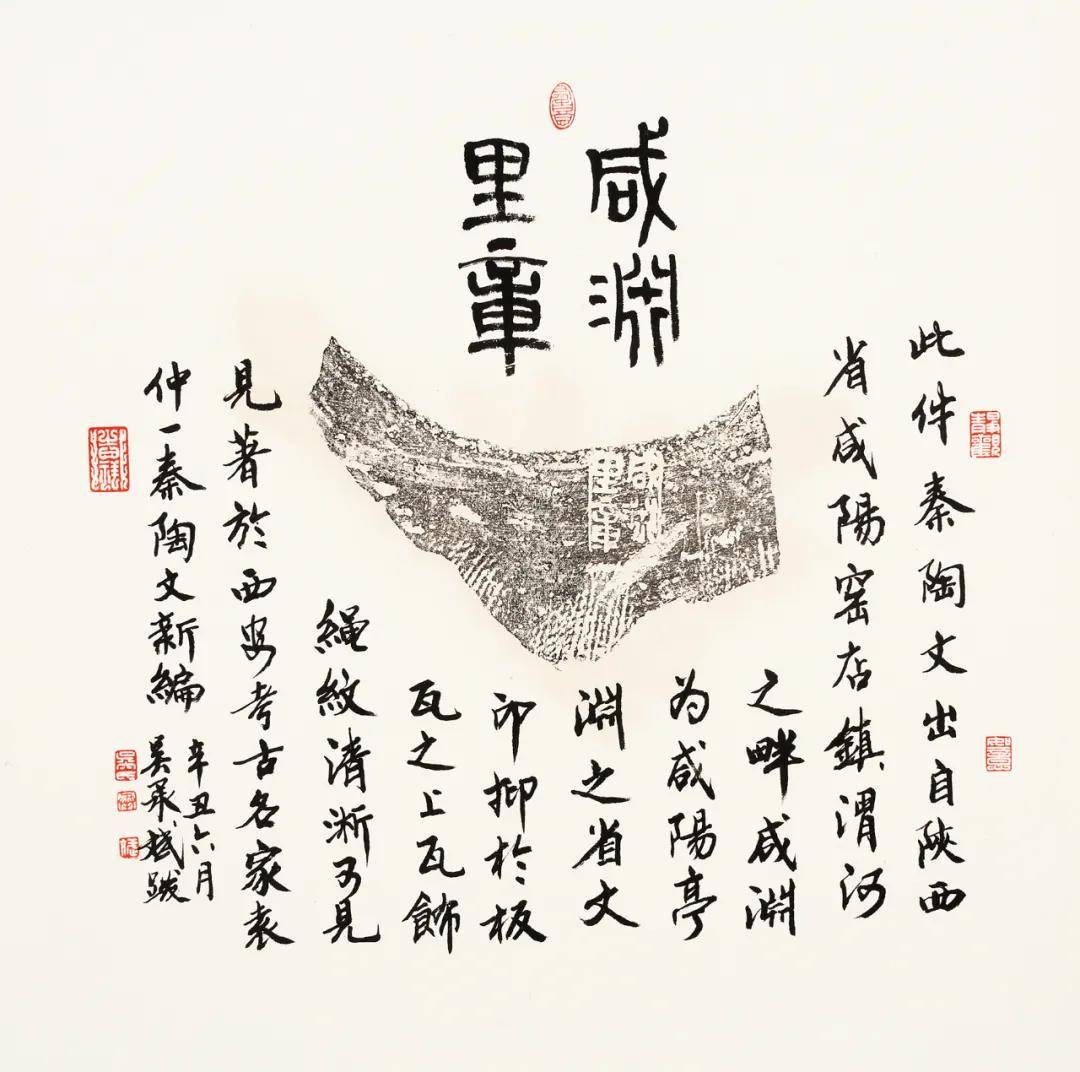 咸淵
里章
此件秦陶文出自陝西
省咸陽窑店鎮渭河
之畔咸淵
为咸陽亭
淵之省文
印抑於板
瓦之上瓦飾
繩紋清淅可見
見著於西安考古名家袁
仲一秦陶文新編
辛丑六月
咸淵
里章